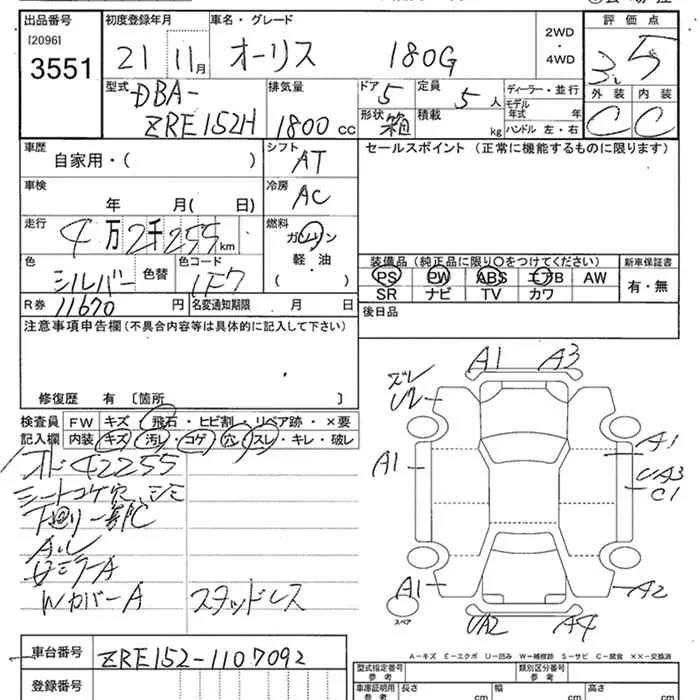 出品番号 初度登録年月 車名・グレード 2WD ・ 4WD 評価点
[2096]
3551 21 11月 オーリス 180G 3.5
型式 DBA- ZRE152H 排気量 1800 cc ドア 5 定員 5人 ディーラー・並行 外装 内装
形状 箱 積載 kg モデル年式 年 C C
ハンドル 左・右
車歴 自家用・( ) シフト AT セールスポイント (正常に機能するものに限ります)
車検 年 月( 日) 冷房 AC
走行 4万2千255km 燃料 ガソリン 軽・油 ( )
色 シルバー 色替 色コード 1F7
装備品(純正品に限り○をつけてください) 新車保証書
PS PW ABS エアB AW 有・無
SR ナビ TV カワ
R券 11670 円 名変通知期限 月 日 後日品
注意事項申告欄(不具合内容等は具体的に記入して下さい)
修復歴 有 〔箇所 〕
検査員 FW キズ 飛石・ヒビ割・リペア跡・×要
記入欄 内装 キズ 汚レ・コゲ・穴・スレ・キレ・破レ
42255
シートコゲ穴、シミ
下回り一部C
AL
ミラーA
WカバーA スタッドレス
A1 A3
ズレ
A1 A1
UA3
C1
A1 A2
スペア
UA2 A4
A-キズ E-エクボ U-凹み W-補修跡 S-サビ C-腐食 XX-交換済
車台番号 ZRE152-1107092
登録番号
型式指定番号 参考 類別区分番号 参考
車庫証明用 参考 長さ cm 幅 cm 高さ cm